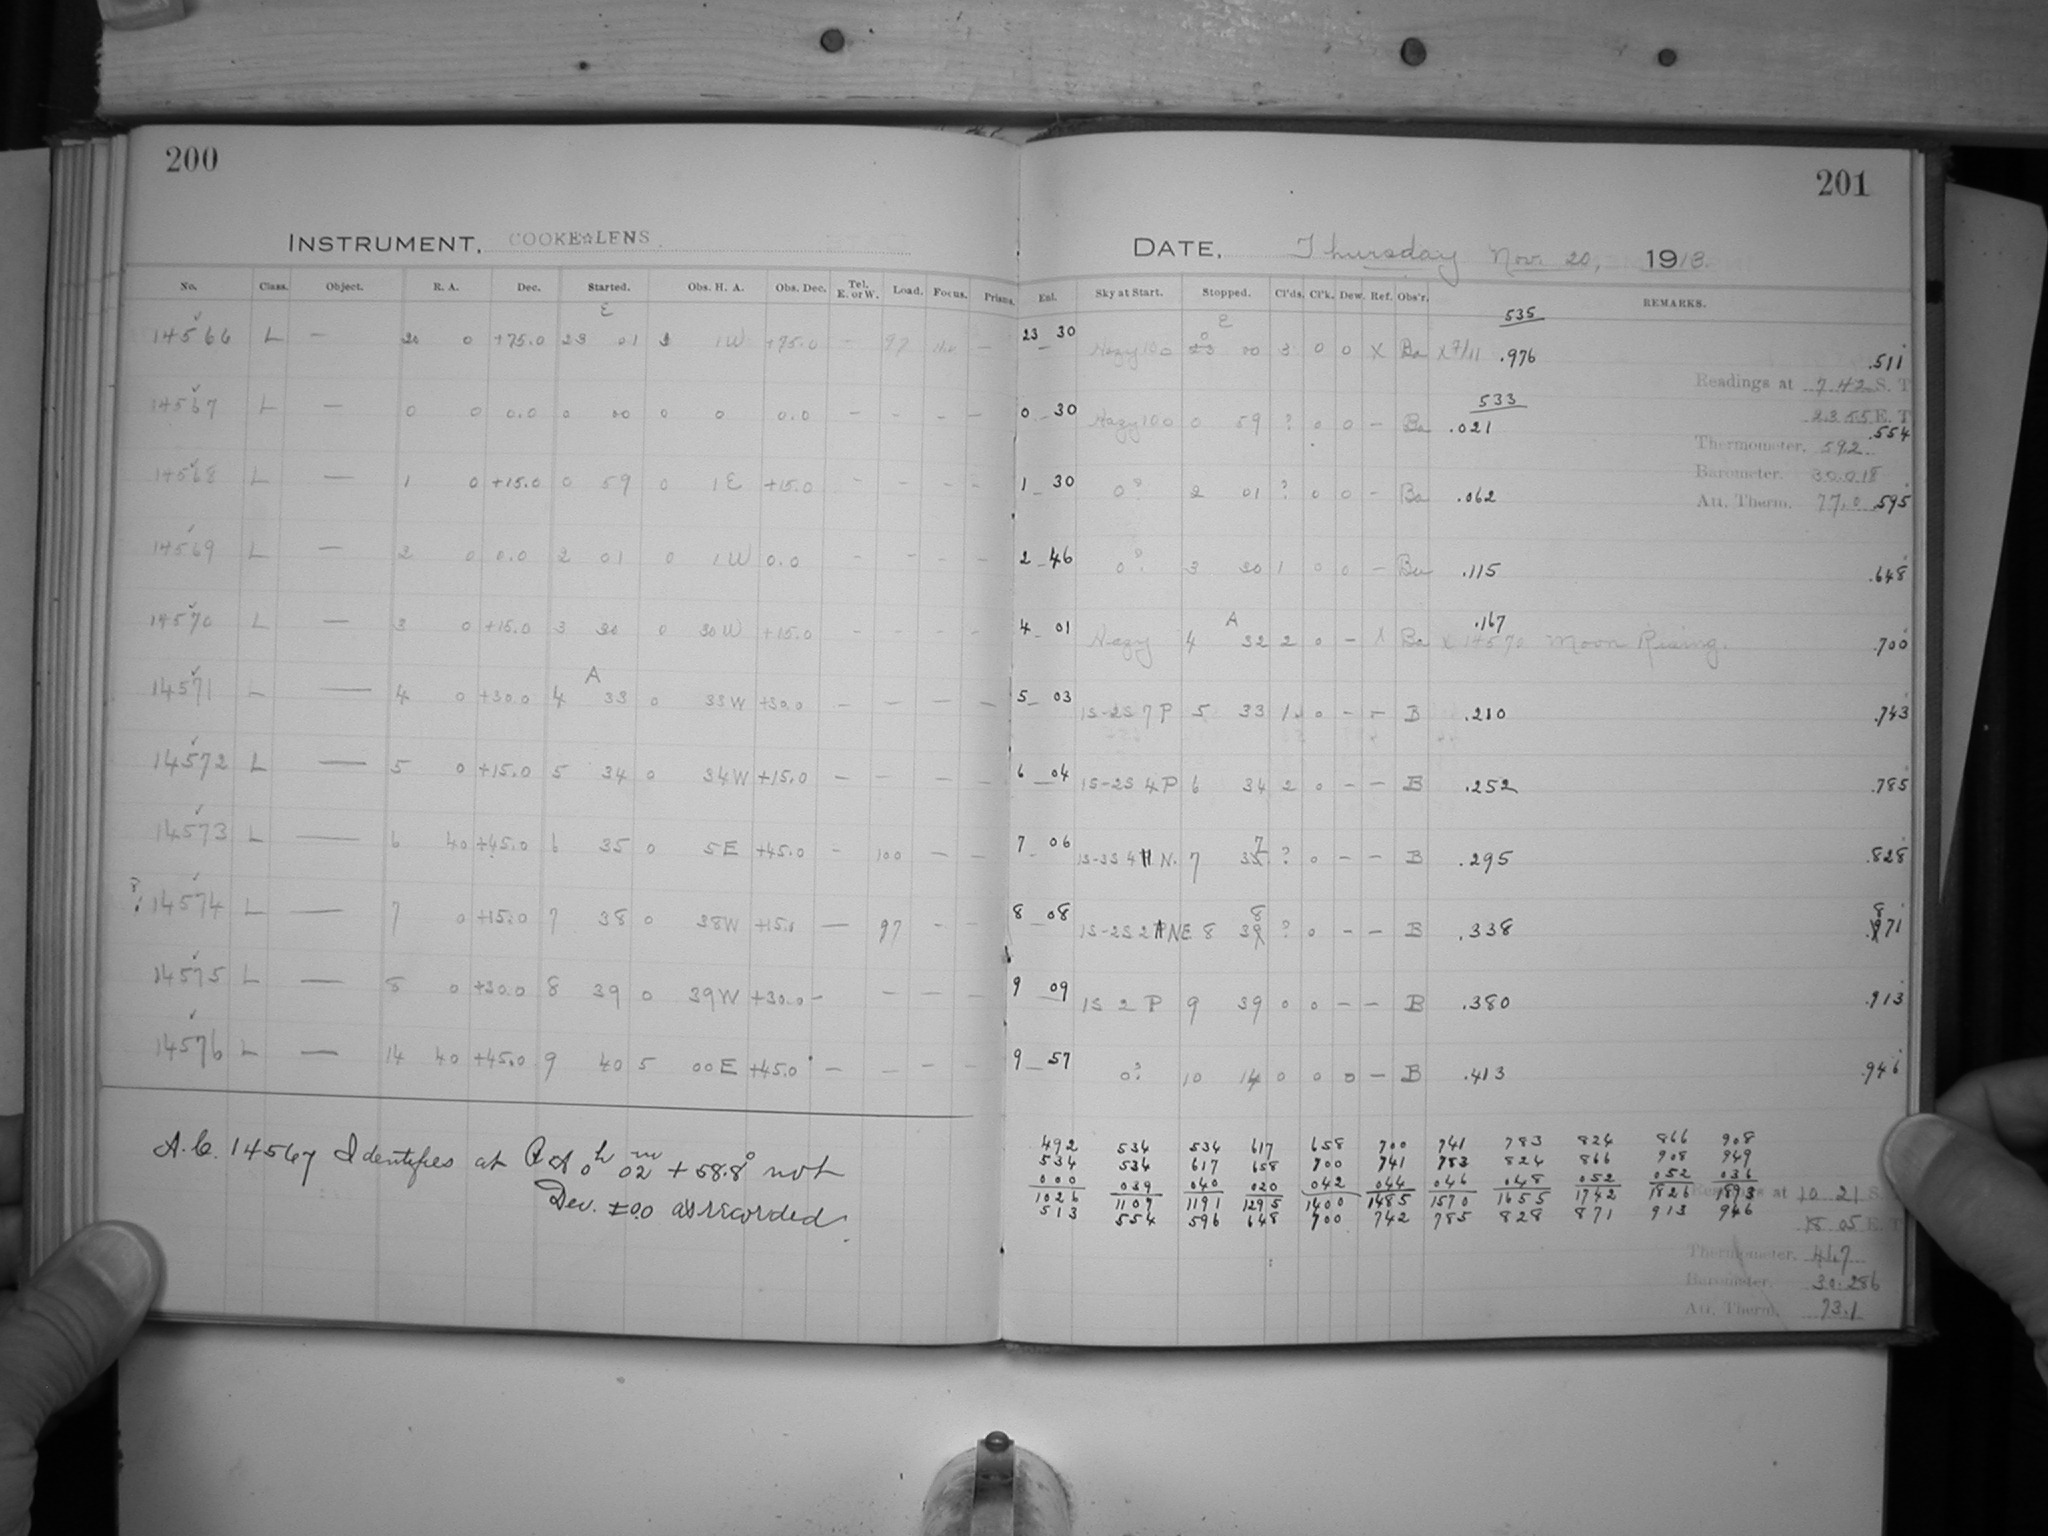 200
INSTRUMENT. COOKE☆LENS
No. Class. Object. R. A. Dec. Started. Obs. H. A. Obs. Dec. Tel. E. or W. Load. Focus. Prisms.
14566 L — 20 0 +75.0 23 01 3 1W +75.0 — 97 —
14567 L — 0 0 0.0 0 00 0 0 0.0 — — — —
14568 L — 1 0 +15.0 0 59 0 1E +15.0 — — — —
14569 L — 2 0 0.0 2 01 0 1W 0.0 — — — —
14570 L — 3 0 +15.0 3 30 0 30W +15.0 — — — —
14571 L — 4 0 +30.0 4 A 33 0 33W +30.0 — — — —
14572 L — 5 0 +15.0 5 34 0 34W +15.0 — — — —
14573 L — 6 40 +45.0 6 35 0 5E +45.0 — 100 — —
? 14574 L — 7 0 +15.0 7 38 0 38W +15.0 — 97 — —
14575 L — 8 0 +30.0 8 39 0 39W +30.0 — — — —
14576 L — 14 40 +45.0 9 40 5 00E +45.0 — — — —
A.C. 14567 Identifies at R A 0h 02m +58.8° not
Dec. ±0.0 as recorded.
201
DATE. Thursday Nov. 20, 1913.
Enl. Sky at Start. Stopped. Cl'ds. Cl'k. Dew. Ref. Obs'r. REMARKS.
535
23 30 Hazy 10 0 E 0 00 3 0 0 X Ba X 7/11 .976 .511
Readings at 7 42 S. T
533 23 55 E. T
0 30 Hazy 10 0 0 59 ? 0 0 — Ba .021 .554
Thermometer. 59.2
Barometer. 30.018
1 30 0? 2 01 ? 0 0 — Ba .062 Att. Therm. 77.0 .595
2 46 0? 3 30 1 0 0 — Ba .115 .648
.167
4 01 Hazy 4 A 32 2 0 — X Ba X 14570 Moon Rising. .700
5 03 1S-2S 7 P 5 33 1 0 — — B .210 .743
6 04 1S-2S 4 P 6 34 2 0 — — B .252 .785
7 06 1S-3S 4 H N. 7 37 ? 0 — — B .295 .828
8 08 1S-2S 2 NE 8 38 ? 0 — — B .338 .871
9 09 1S 2 P 9 39 0 0 — — B .380 .913
9 57 0? 10 14 0 0 0 — B .413 .946
492 534 534 617 658 700 741 783 824 866 908
534 534 617 658 700 741 783 824 866 908 949
000 039 040 020 042 044 046 048 052 052 036
1026 1107 1191 1295 1400 1485 1570 1655 1742 1826 1893
513 554 596 648 700 742 785 828 871 913 946
Readings at 10 21 S.
18 05 E. T
Thermometer. 46.7
Barometer. 30.286
Att. Therm. 73.1